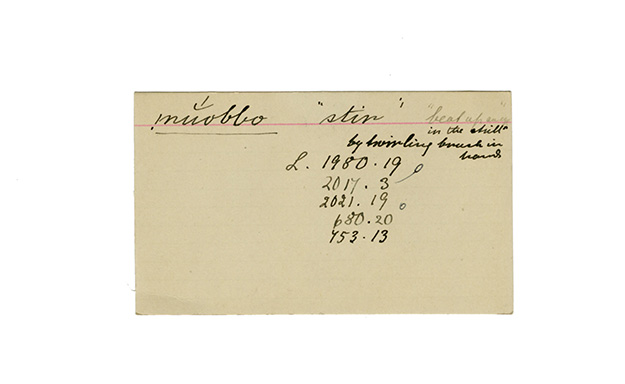 ṃŭobbo "stir" "beat up eggs
in the skull"
by twirling brush in
hands
L. 1980.19
2017.3
2021.19
680.20
753.13